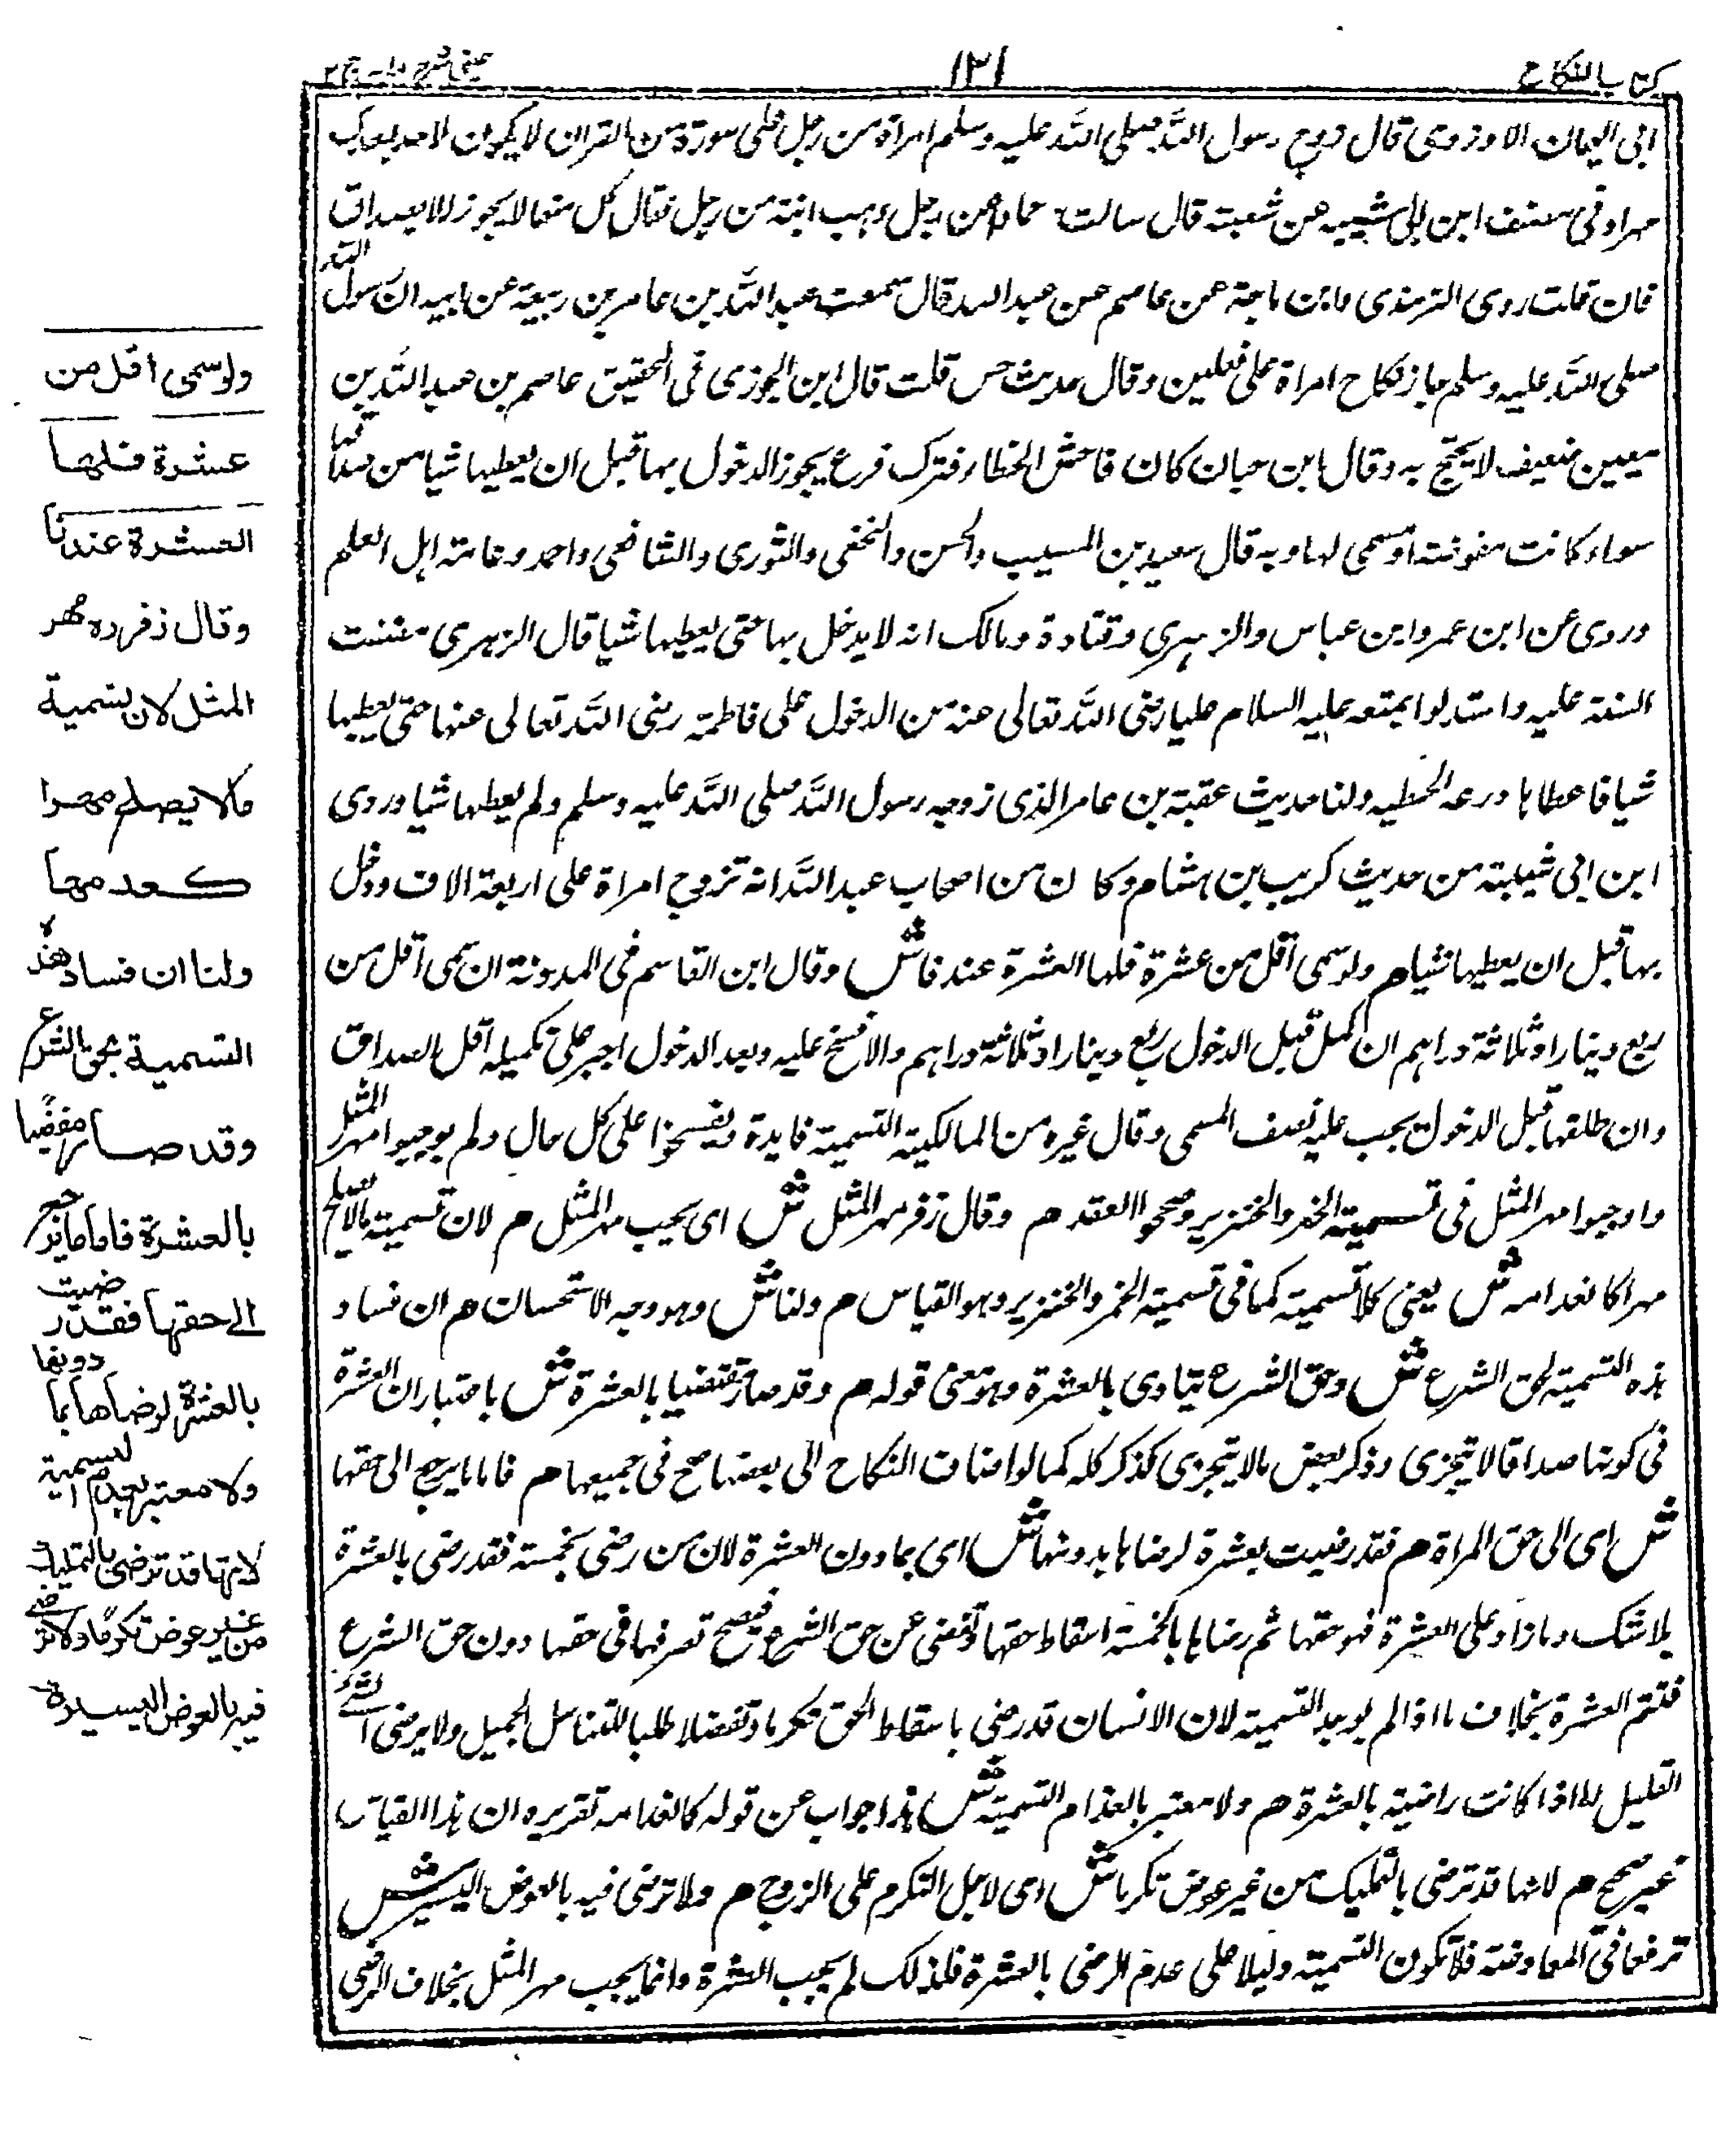 كتاب النكاح
١٢١
عينى شرح هدايه ج ٢
ابى النعمان الاوزدى قال زوج رسول الله صلى الله عليه وسلم امراة من رجل على سورة من القران لا يكون لاحد بعدك
مهرا وفى مصنف ابن ابى شيبة عن شعبة قال سالت حمادا عن رجل وهب ابنته من رجل فقال كل منهما لا يجوز الا بصداق
فان قلت روى الترمذى وابن ماجة عن عاصم عن عبيد الله قال سمعت عبد الله بن عامر بن ربيعة عن ابيه ان رسول الله
صلى الله عليه وسلم جاز نكاح امراة على نعلين وقال حديث حسن قلت قال ابن الجوزى فى التحقيق عاصم بن عبيد الله بن
معين ضعيف لا يحتج به وقال ابن حبان كان فاحش الخطا فترك فرع يجوز الدخول بها قبل ان يعطيها شيا من صداقها
سواء كانت مفوضة او مسمى لها وبه قال سعيد بن المسيب والحسن والنخعى والثورى والشافعى واحمد وعامة اهل العلم
وروى عن ابن عمر وابن عباس والزهرى وقتادة ومالك انه لا يدخل بها حتى يعطيها شيا قال الزهرى مضنت
السنة عليه واستدلوا بمنعه عليه السلام عليا رضى الله تعالى عنه من الدخول على فاطمة رضى الله تعالى عنها حتى يعطيها
شيا فاعطاها درعه الحطمية ولنا حديث عقبة بن عامر الذى زوجه رسول الله صلى الله عليه وسلم ولم يعطها شيا وروى
ابن ابى شيبة من حديث كريب بن هشام وكان من اصحاب عبد الله انه تزوج امراة على اربعة الاف ودخل
بها قبل ان يعطيها شيا م ولو سمى اقل من عشرة فلها العشرة عندنا ش وقال ابن القاسم فى المدونة ان سمى اقل من
ربع دينار او ثلاثة دراهم ان كمل قبل الدخول ربع دينار او ثلاثة دراهم والا فسخ عليه وبعد الدخول اجبر على تكميله اقل الصداق
وان طلقها قبل الدخول يجب عليه نصف المسمى وقال غيره من المالكية التسمية فايدة ويفسخوا على كل حال ولم يوجبوا مهر المثل
واوجبوا مهر المثل فى تسمية الخمر والخنزير وصححوا العقد م وقال زفر مهر المثل ش اى يجب مهر المثل م لان تسمية مالا يصلح
مهرا كانعدامه ش يعنى كلا تسمية كما فى تسمية الخمر والخنزير وهو القياس م ولنا ش وهو وجه الاستحسان م ان فساد
هذه التسمية لحق الشرع ش وحق الشرع يتادى بالعشرة وهو معنى قوله م وقد صار مقتضيا بالعشرة ش باعتبار ان العشرة
فى كونها صداقا لا تتجزى وذكر بعض مالا يتجزى كذكر كله كما لو اضاف النكاح الى بعضها صح فى جميعها م فاما ما يرجع الى حقها
ش اى الى حق المراة م فقد رضيت بعشرة لرضاها بدونها ش اى بما دون العشرة لان من رضى بخمسة فقد رضى بالعشرة
بلا شك وما زاد على العشرة فهو حقها ثم رضاها بالخمسة اسقاط حقها وتفضى عن حق الشرع فيصح تصرفها فى حقها دون حق الشرع
فتتم العشرة بخلاف ما اذا لم يوجد التسمية لان الانسان قد رضى باسقاط الحق تكرما وتفضلا طلبا للتفاضل الجميل ولا يرضى الشئ
القليل لها اذا كانت راضية بالعشرة م ولا معتبر بانعدام التسمية ش هذا جواب عن قوله كانعدامه تقريره ان هذا القياس
غير صحيح م لانها قد ترضى بالتمليك من غير عوض تكرما ش اى لاجل التكرم على الزوج م ولا ترضى فيه بالعوض اليسير ش
ترفعا فى المعاوضة فلا تكون التسمية دليلا على عدم الرضى بالعشرة فلذلك لم يجب العشرة وانما يجب مهر المثل بخلاف الرضى
ولو سمى اقل من
عشرة فلها
العشرة عندنا
وقال زفر ره مهر
المثل لان تسمية
مالا يصلح مهرا
كعدمها
ولنا ان فساد هذه
التسمية بحق الشرع
وقد صار مقضيا
بالعشرة فاما ما يرجع
الى حقها فقد رضيت
بالعشرة لرضاها بما دونها
ولا معتبر بعدم التسمية
لانها قد ترضى بالتمليك
من غير عوض تكرما ولا ترضى
فيه بالعوض اليسير